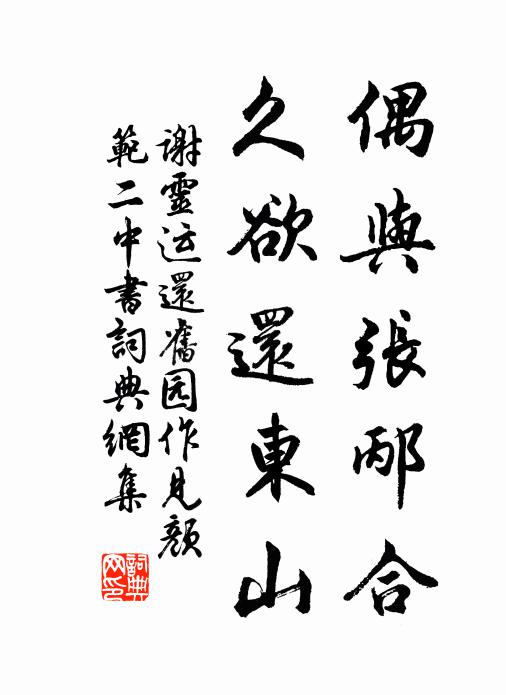 偶與張邴合
久欲還東山
謝靈运還舊园作見顏
範二中書詞典網集
詞典
网印